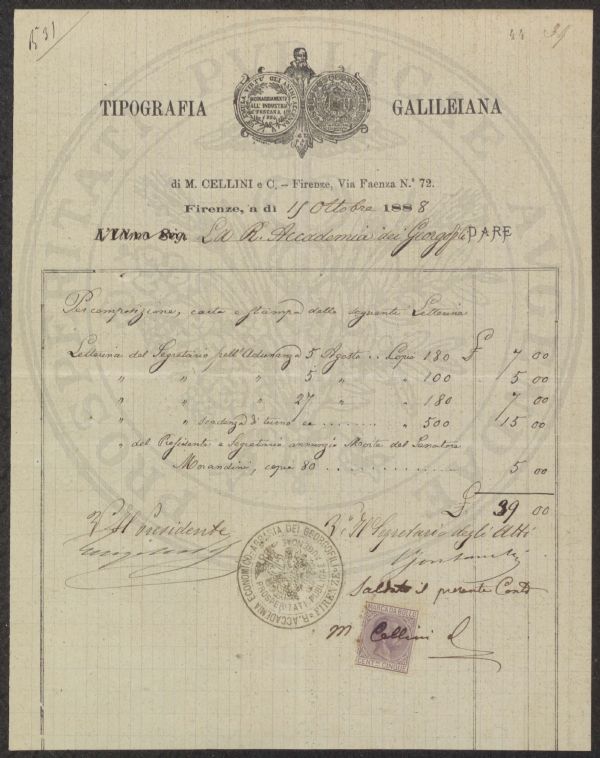 39
TIPOGRAFIA GALILEIANA
INCORAGGIAMENTO
ALL'INDUSTRIA
TOSCANA
di M. CELLINI e C. – Firenze, Via Faenza N.° 72.
Firenze, a dì 15 Ottobre 1888
La R. Accademia dei Georgofili DARE
Per composizione, carta e stampa delle seguenti Letterine
Letterina del Segretario pell'Adunanza 5 Agosto .. Copie 180 £ 7 00
" " " 5 " " 100 5 00
" " " 27 " " 180 7 00
" scadenza di turno ec ........ " 500 15 00
" del Presidente e Segretario annunzio Morte del Senatore
Morandini, copie 80 .............. 5 00
£ 39 00
Il Presidente
Il Segretario degli Atti
R. ACCADEMIA ECONOMICO-AGRARIA DEI GEORGOFILI FIRENZE
PROSPERITATI PUBLICAE
Saldato il presente Conto
M Cellini
MARCA DA BOLLO
CENT. CINQUE